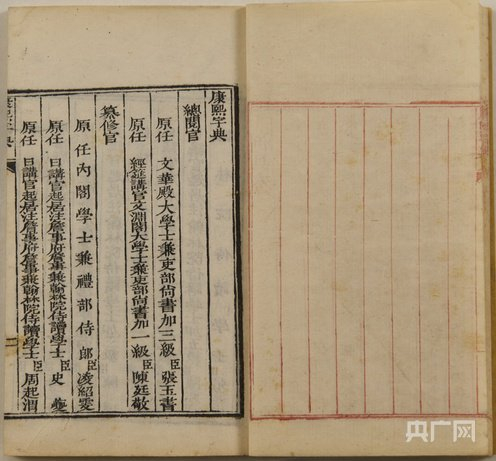 康熙字典
總閱官
原任 文華殿大學士兼吏部尚書加三級臣張玉書
原任 經筵講官文淵閣大學士兼吏部尚書加一級臣陳廷敬
纂修官
原任內閣學士兼禮部侍郎臣凌紹雯
原任 日講官起居注詹事府詹事兼翰林院侍讀學士臣史夔
原任 日講官起居注詹事府詹事兼翰林院侍讀學士臣周起渭
康熙字典
央广网